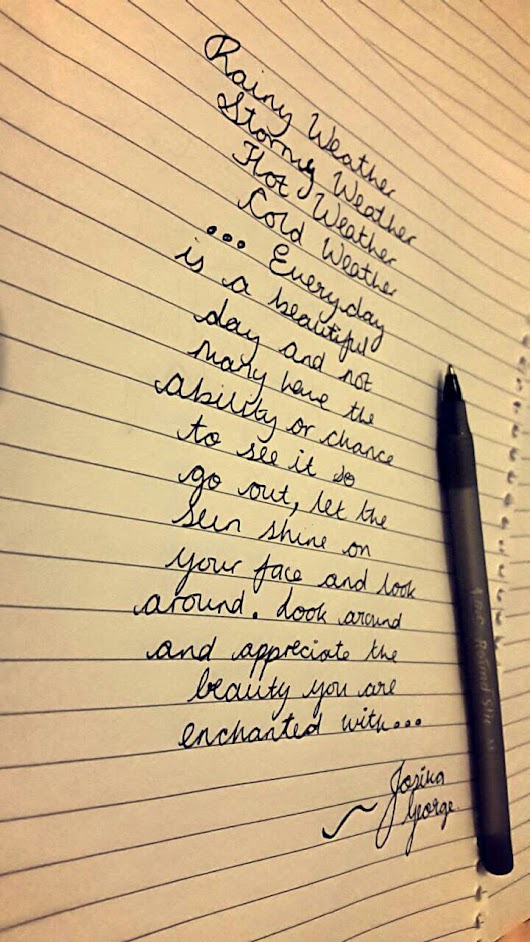 Rainy Weather
Stormy Weather
Hot Weather
Cold Weather
... Everyday
is a beautiful
day and not
many have the
ability or chance
to see it so
go out, let the
sun shine on
your face and look
around. Look around
and appreciate the
beauty you are
enchanted with...
~ Josika
George